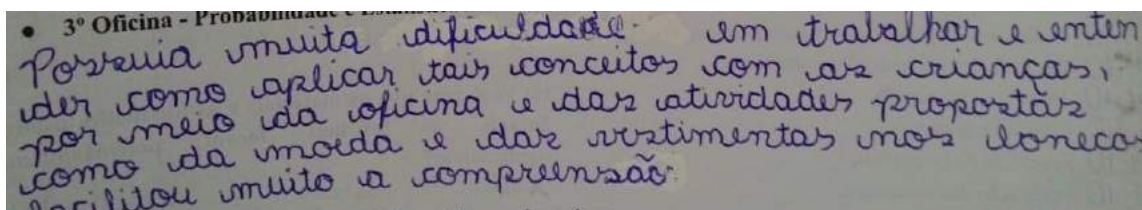 • 3º Oficina - Probabilidade e
Possuia muita dificuldade em trabalhar e enten
der como aplicar tais conceitos com as crianças,
por meio da oficina e das atividades propostas
como da moeda e das vestimentas nos bonecos
facilitou muito a compreensão.